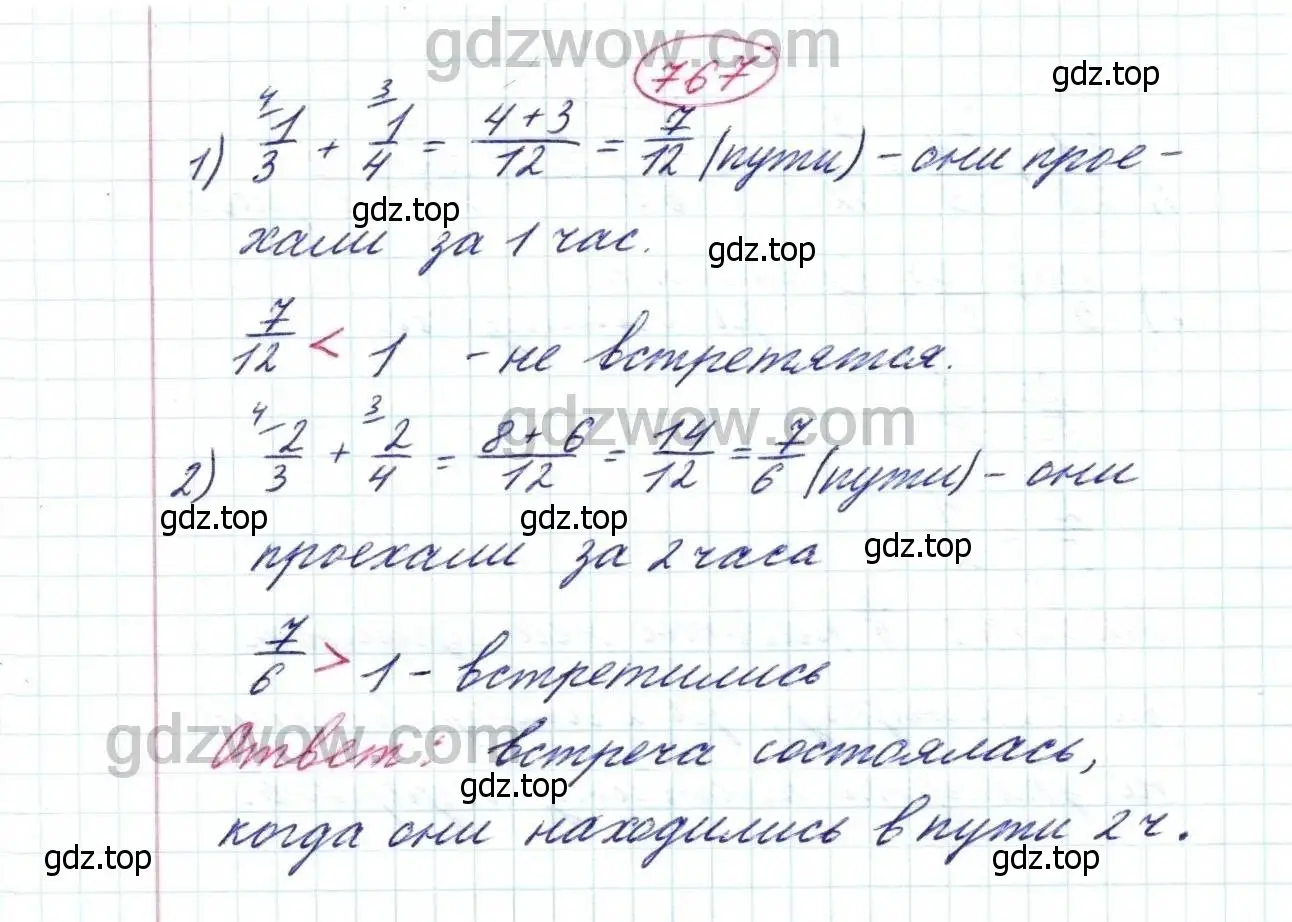 gdzwow.com
767
gdz.top
1) ⁴⁻1/3 + ³⁻1/4 = (4+3)/12 = 7/12 (пути) – они прое-
gdz.top
хали за 1 час.
gdz.top
7/12 < 1 – не встретятся.
gdzwow.com
2) ⁴⁻2/3 + ³⁻2/4 = (8+6)/12 = 14/12 = 7/6 (пути) – они
gdz.top gdz.top gdz.top
проехали за 2 часа
7/6 > 1 – встретились
gdzwow.com
Ответ: встреча состоялась,
gdz.top
когда они находились в пути 2 ч.
gdz.top gdz.top